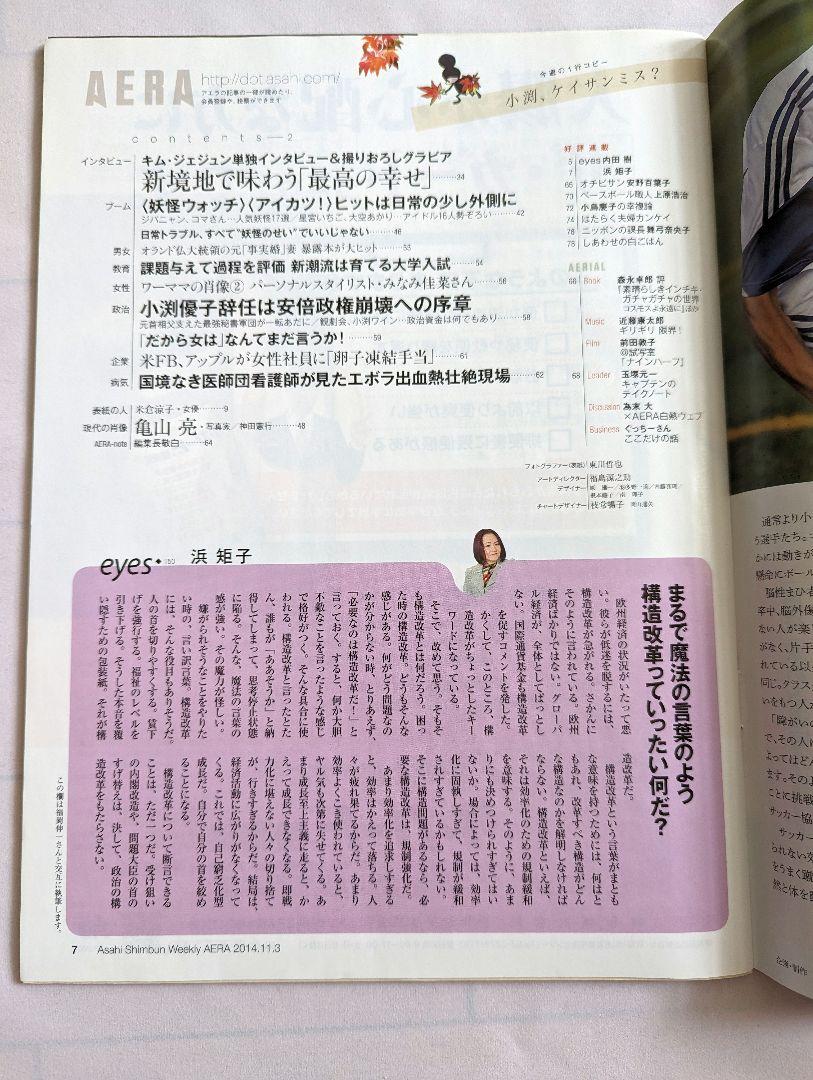 AERA
http://dot.asahi.com/
アエラの記事の一部が読めたり、
会員登録や、投票ができます
今週の1行コピー
小渕、ケイサンミス?
contents—2
インタビュー
キム・ジェジュン単独インタビュー&撮りおろしグラビア
新境地で味わう「最高の幸せ」 24
ブーム
〈妖怪ウォッチ〉〈アイカツ!〉ヒットは日常の少し外側に
ジバニャン、コマさん…人気妖怪17選/星宮いちご、大空あかり…アイドル16人勢ぞろい 42
日常トラブル、すべて“妖怪のせい”でいいじゃない 46
男女 オランド仏大統領の元「事実婚」妻 暴露本が大ヒット 53
教育 課題与えて過程を評価 新潮流は育てる大学入試 54
女性 ワーママの肖像② パーソナルスタイリスト・みなみ佳菜さん 56
政治 小渕優子辞任は安倍政権崩壊への序章
元首相父支えた最強秘書軍団が一転あだに/観劇会、小渕ワイン…政治資金は何でもあり 58
「だから女は」なんてまだ言うか! 59
企業 米FB、アップルが女性社員に「卵子凍結手当」 61
病気 国境なき医師団看護師が見たエボラ出血熱壮絶現場 62
表紙の人 米倉涼子・女優 9
現代の肖像 亀山 亮・写真家/神田憲行 48
AERA-note 編集長敬白 64
好評連載
5 eyes 内田 樹
7 浜 矩子
66 オチビサン 安野百葉子
73 ベースボール職人 上原浩治
72 小島慶子の幸複論
74 はたらく夫婦カンケイ
76 ニッポンの課長 舞弓奈央子
78 しあわせの白ごはん
AERIAL
66 Book 森永卓郎 評
『素晴らしきインチキ・
ガチャガチャの世界
コスモスよ永遠に』ほか
Music 近藤康太郎
ギリギリ 限界!
Film 前田敦子
@試写室
「ナインハーフ」
68 Leader 玉塚元一
キャプテンの
テイクノート
Discussion 為末 大
×AERA白熱ウェブ
Business ぐっちーさん
ここだけの話
フォトグラファー(表紙) 東川哲也
アートディレクター 福島源之助
デザイナー
チャートデザイナー
eyes 150 浜 矩子
まるで魔法の言葉のよう
構造改革っていったい何だ?
欧州経済の状況がいたって悪
い。彼らが低迷を脱するには、
構造改革が急がれる。さかんに
そのように言われている。欧州
経済ばかりではない。グローバ
ル経済が、全体としてぱっとし
ない。国際通貨基金も構造改革
を促すコメントを発した。
かくして、このところ、構
造改革がちょっとしたキー
ワードになっている。
そこで、改めて思う。そもそ
も構造改革とは何だろう。困っ
た時の構造改革。どうもそんな
感じがある。何がどう問題なの
かが分からない時、とりあえず、
「必要なのは構造改革だ!」と
言っておく。すると、何か大胆
不敵なことを言ったような感じ
で格好がつく。そんな具合に使
われる。構造改革と言ったとた
ん、誰もが「ああそうか」と納
得してしまって、思考停止状態
に陥る。そんな、魔法の言葉の
感が強い。その魔力が怪しい。
嫌がられそうなことをやりた
い時の、言い訳言葉。構造改革
には、そんな役目もありそうだ。
人の首を切りやすくする。賃下
げを強行する。福祉のレベルを
引き下げる。そうした本音を覆
い隠すための包装紙。それが構
造改革だ。
構造改革という言葉がまとも
な意味を持つためには、何はと
もあれ、改革すべき構造がどん
な構造なのかを解明しなければ
ならない。構造改革といえば、
それは効率化のための規制緩和
を意味する。そのように、あま
りにも決めつけられすぎてはい
ないか。場合によっては、効率
化に固執しすぎて、規制が緩和
されすぎているかもしれない。
そこに構造問題があるなら、必
要な構造改革は、規制強化だ。
あまり効率化を追求しすぎる
と、効率はかえって落ちる。人
々が疲れ果てるからだ。あまり
効率よくこき使われていると、
ヤル気も次第に失せてくる。あ
まり成長至上主義に走ると、か
えって成長できなくなる。即戦
力化に堪えない人々の切り捨て
が、行きすぎるからだ。結局は、
経済活動に広がりがなくなって
くる。これでは、自己窮乏化型
成長だ。自分で自分の首を絞め
ることになる。
構造改革について断言できる
ことは、ただ一つだ。受け狙い
の内閣改造や、問題大臣の首の
すげ替えは、決して、政治の構
造改革をもたらさない。
この欄は福岡伸一さんと交互に執筆します。
7 Asahi Shimbun Weekly AERA 2014.11.3
通常より小
う選手たち。
かには動きが
懸命にボール
脳性まひ者
卒中、脳外傷
ない人が楽
がなく、片手
れている以
同じ。クラス
いをもつ人
「腕がい
で、その人に
よってはど
ます。その
ことに挑戦
サッカー協
サッカー
られない交
をうまく避
然と体を
企画・制作